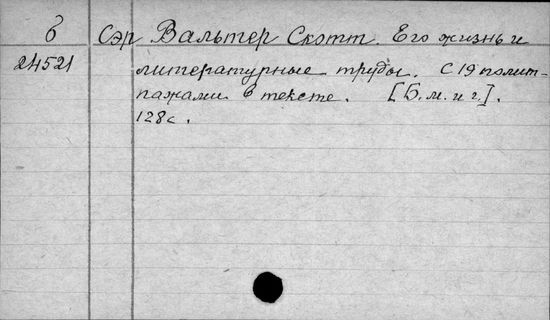 б Сэр Вальтер Скотт. Его жизнь и
24521 литературные труды. С 19 полит-
пажами в тексте. [Б.м. и г.].
128 с.